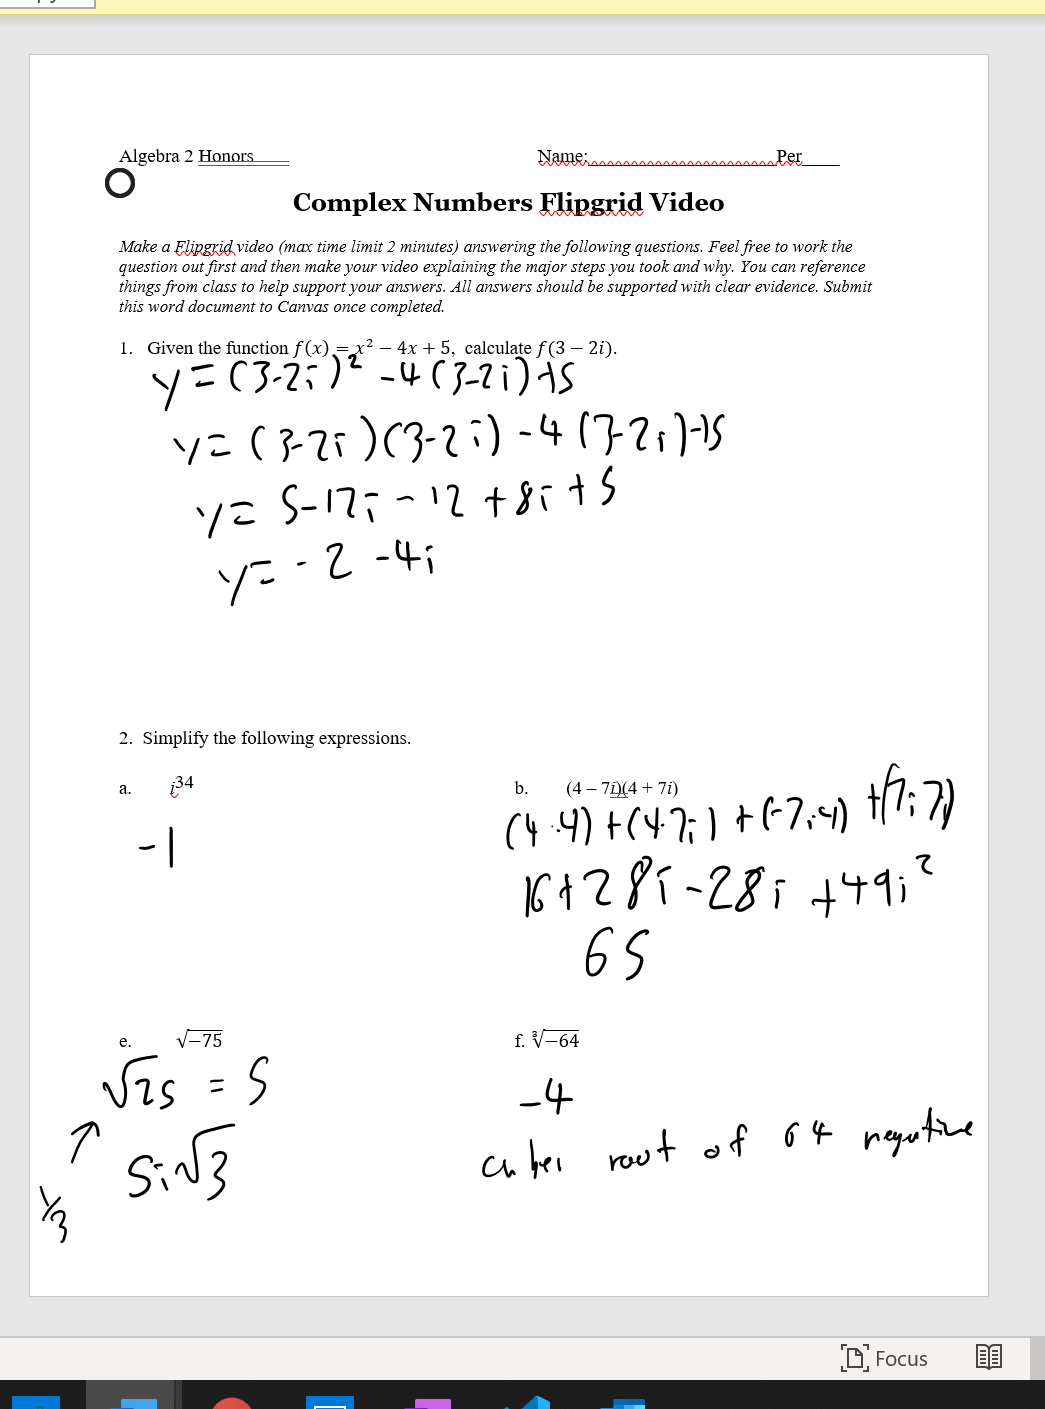 Algebra 2 Honors Name: Per
Complex Numbers Flipgrid Video
Make a Flipgrid video (max time limit 2 minutes) answering the following questions. Feel free to work the
question out first and then make your video explaining the major steps you took and why. You can reference
things from class to help support your answers. All answers should be supported with clear evidence. Submit
this word document to Canvas once completed.
1. Given the function f(x) = x² − 4x + 5, calculate f(3 − 2i).
y = (3-2i)² -4(3-2i)+5
y = (3-2i)(3-2i) -4(3-2i)+5
y = 5-12i -12 +8i +5
y = -2 -4i
2. Simplify the following expressions.
a. i³⁴ b. (4 – 7i)(4 + 7i)
(4·4)+(4·7i)+(-7i·4)+(7i·7i)
-1
16+28i-28i+49i²
65
e. √−75 f. ∛−64
√25 = 5
-4
5i√3
root of 64 negative
1/3
Focus